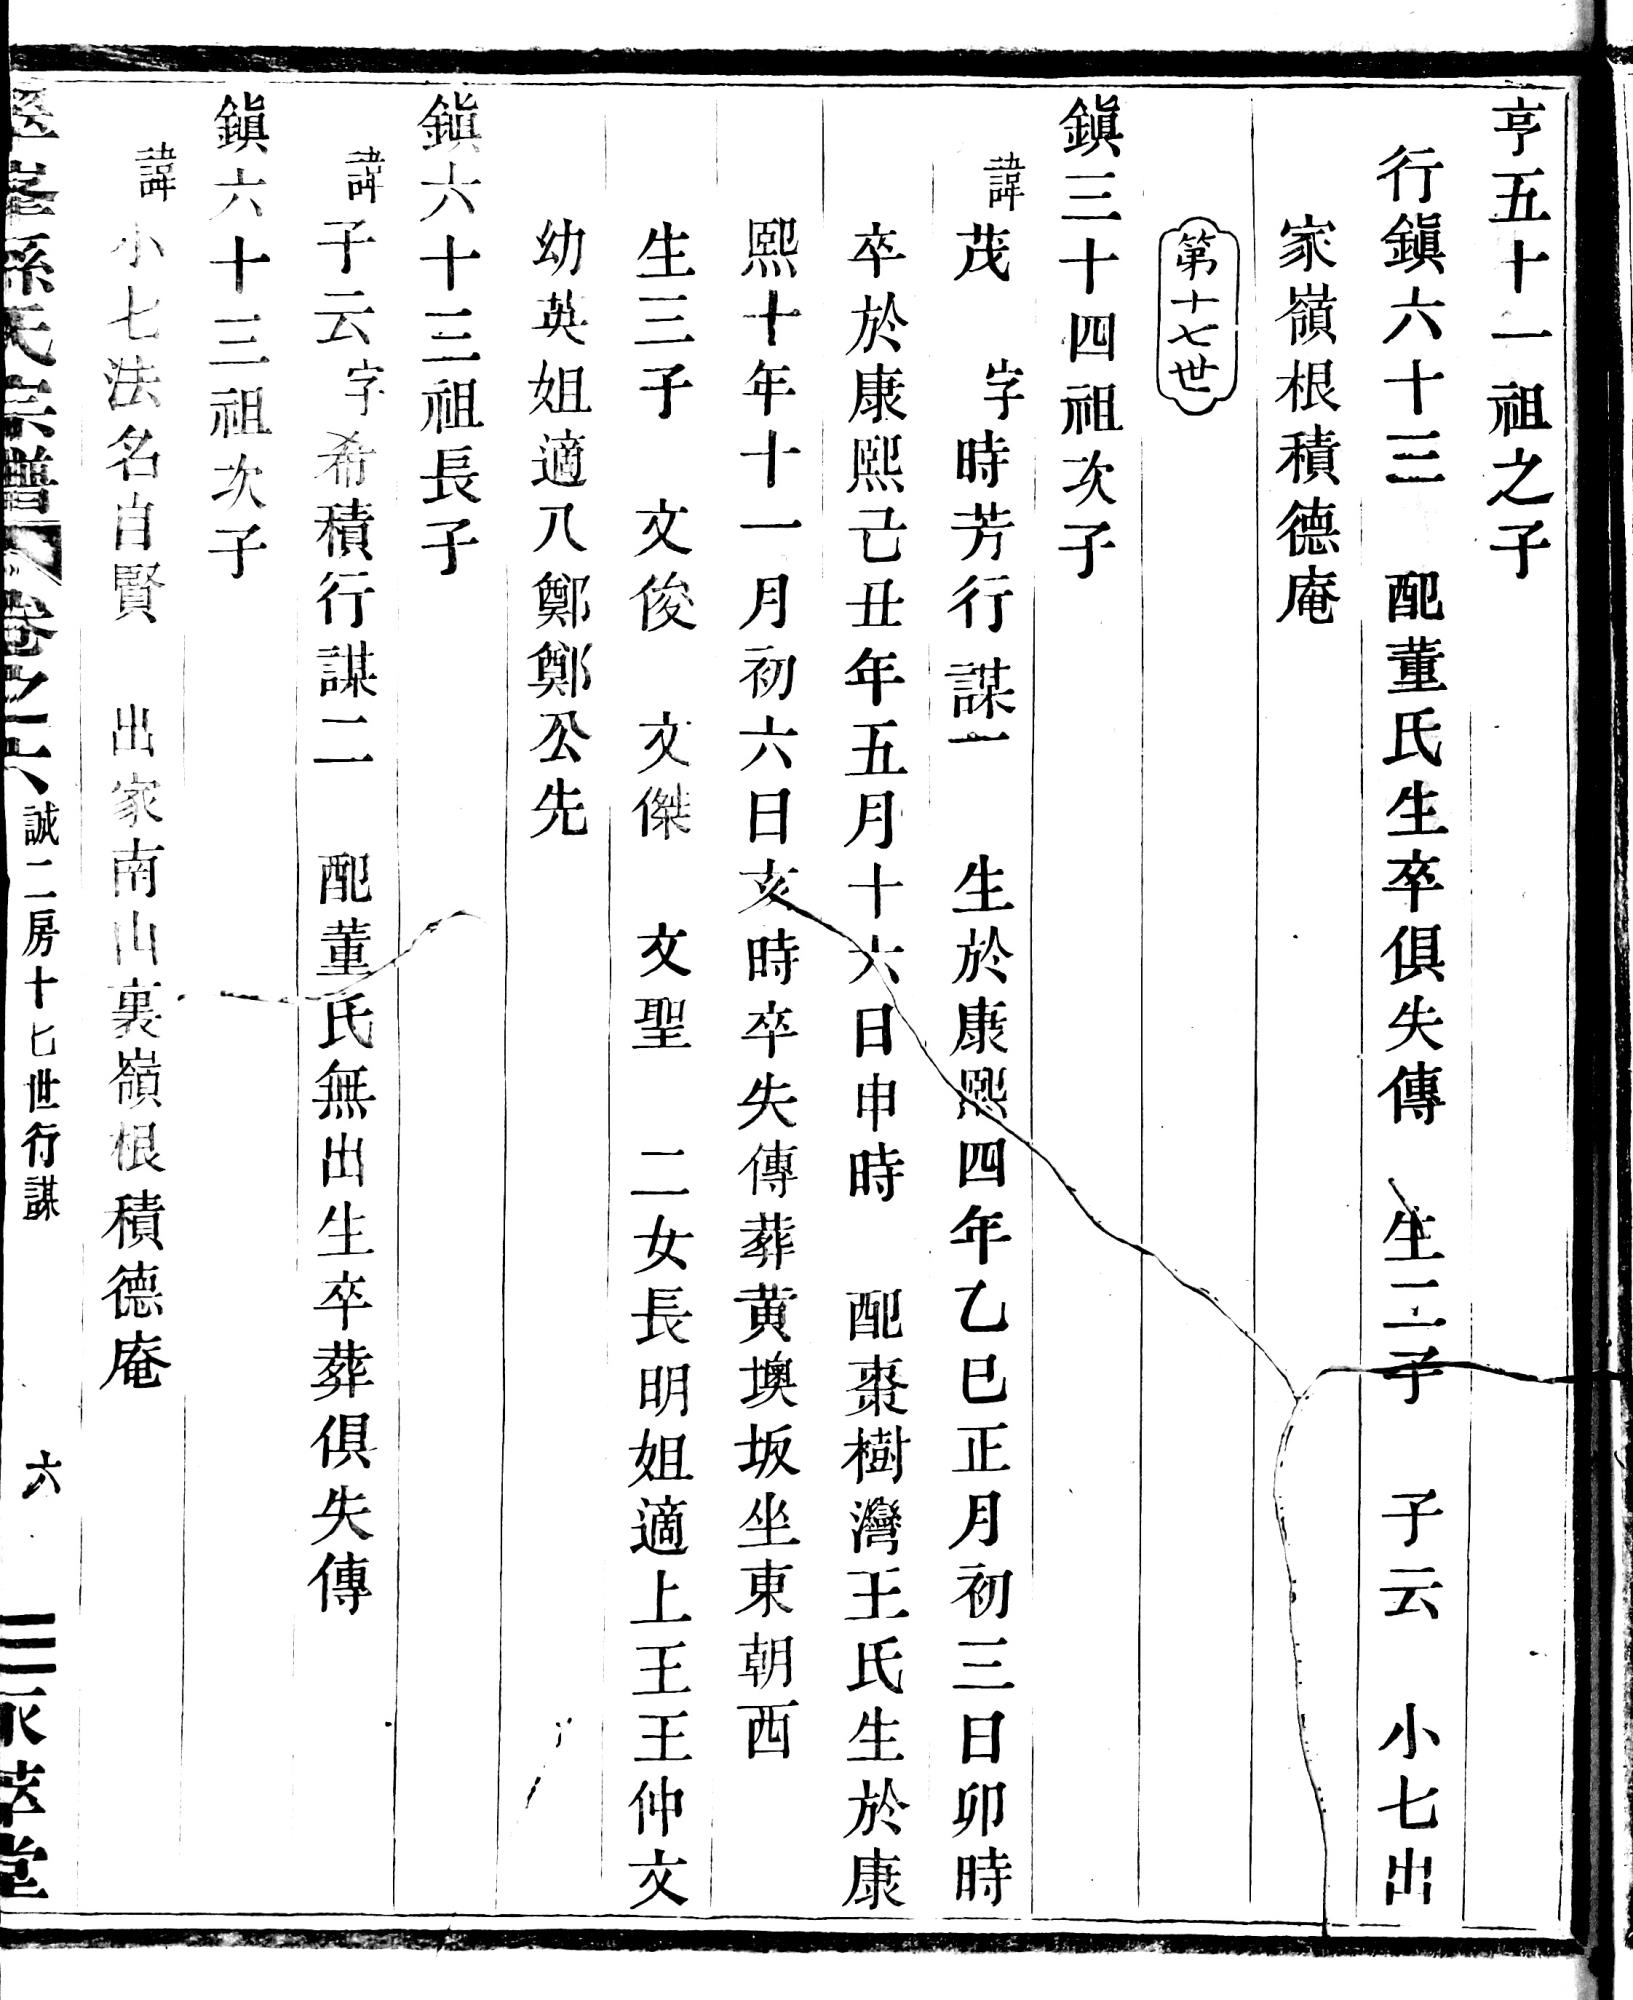 亨五十一祖之子
行鎭六十三　配董氏生卒俱失傳　生二子　子云　小七出
家嶺根積德庵
第十七世
鎭三十四祖次子
諱茂　字時芳行謀一　生於康熙四年乙巳正月初三日卯時
卒於康熙己丑年五月十六日申時　配棗樹灣王氏生於康
熙十年十一月初六日亥時卒失傳葬黃墺坂坐東朝西
生三子　文俊　文傑　文聖　二女長明姐適上王王仲文
幼英姐適八鄭鄭公先
鎭六十三祖長子
諱子云字希積行謀二　配董氏無出生卒葬俱失傳
鎭六十三祖次子
諱小七法名自賢　出家南山裏嶺根積德庵
峯孫氏宗譜　卷之六　誠二房十七世行謀　六　萃堂